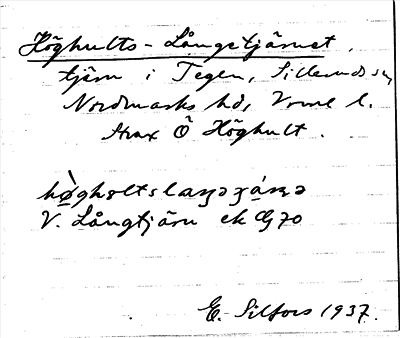 Höghults-Långetjärnet,
tjärn i Tegen, Sillerud sn,
Nordmarks hd, Vrml l.
strax Ö Höghult.
hø̀ghɷltslaŋəɟá·ṇə
V. Långtjärn ek G 70
E. Silfors 1937.